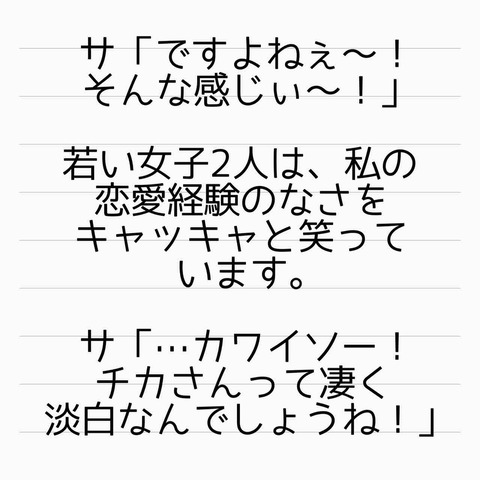 サ「ですよねぇ〜！
そんな感じぃ〜！」
若い女子2人は、私の
恋愛経験のなさを
キャッキャと笑って
います。
サ「…カワイソー！
チカさんって凄く
淡白なんでしょうね！」